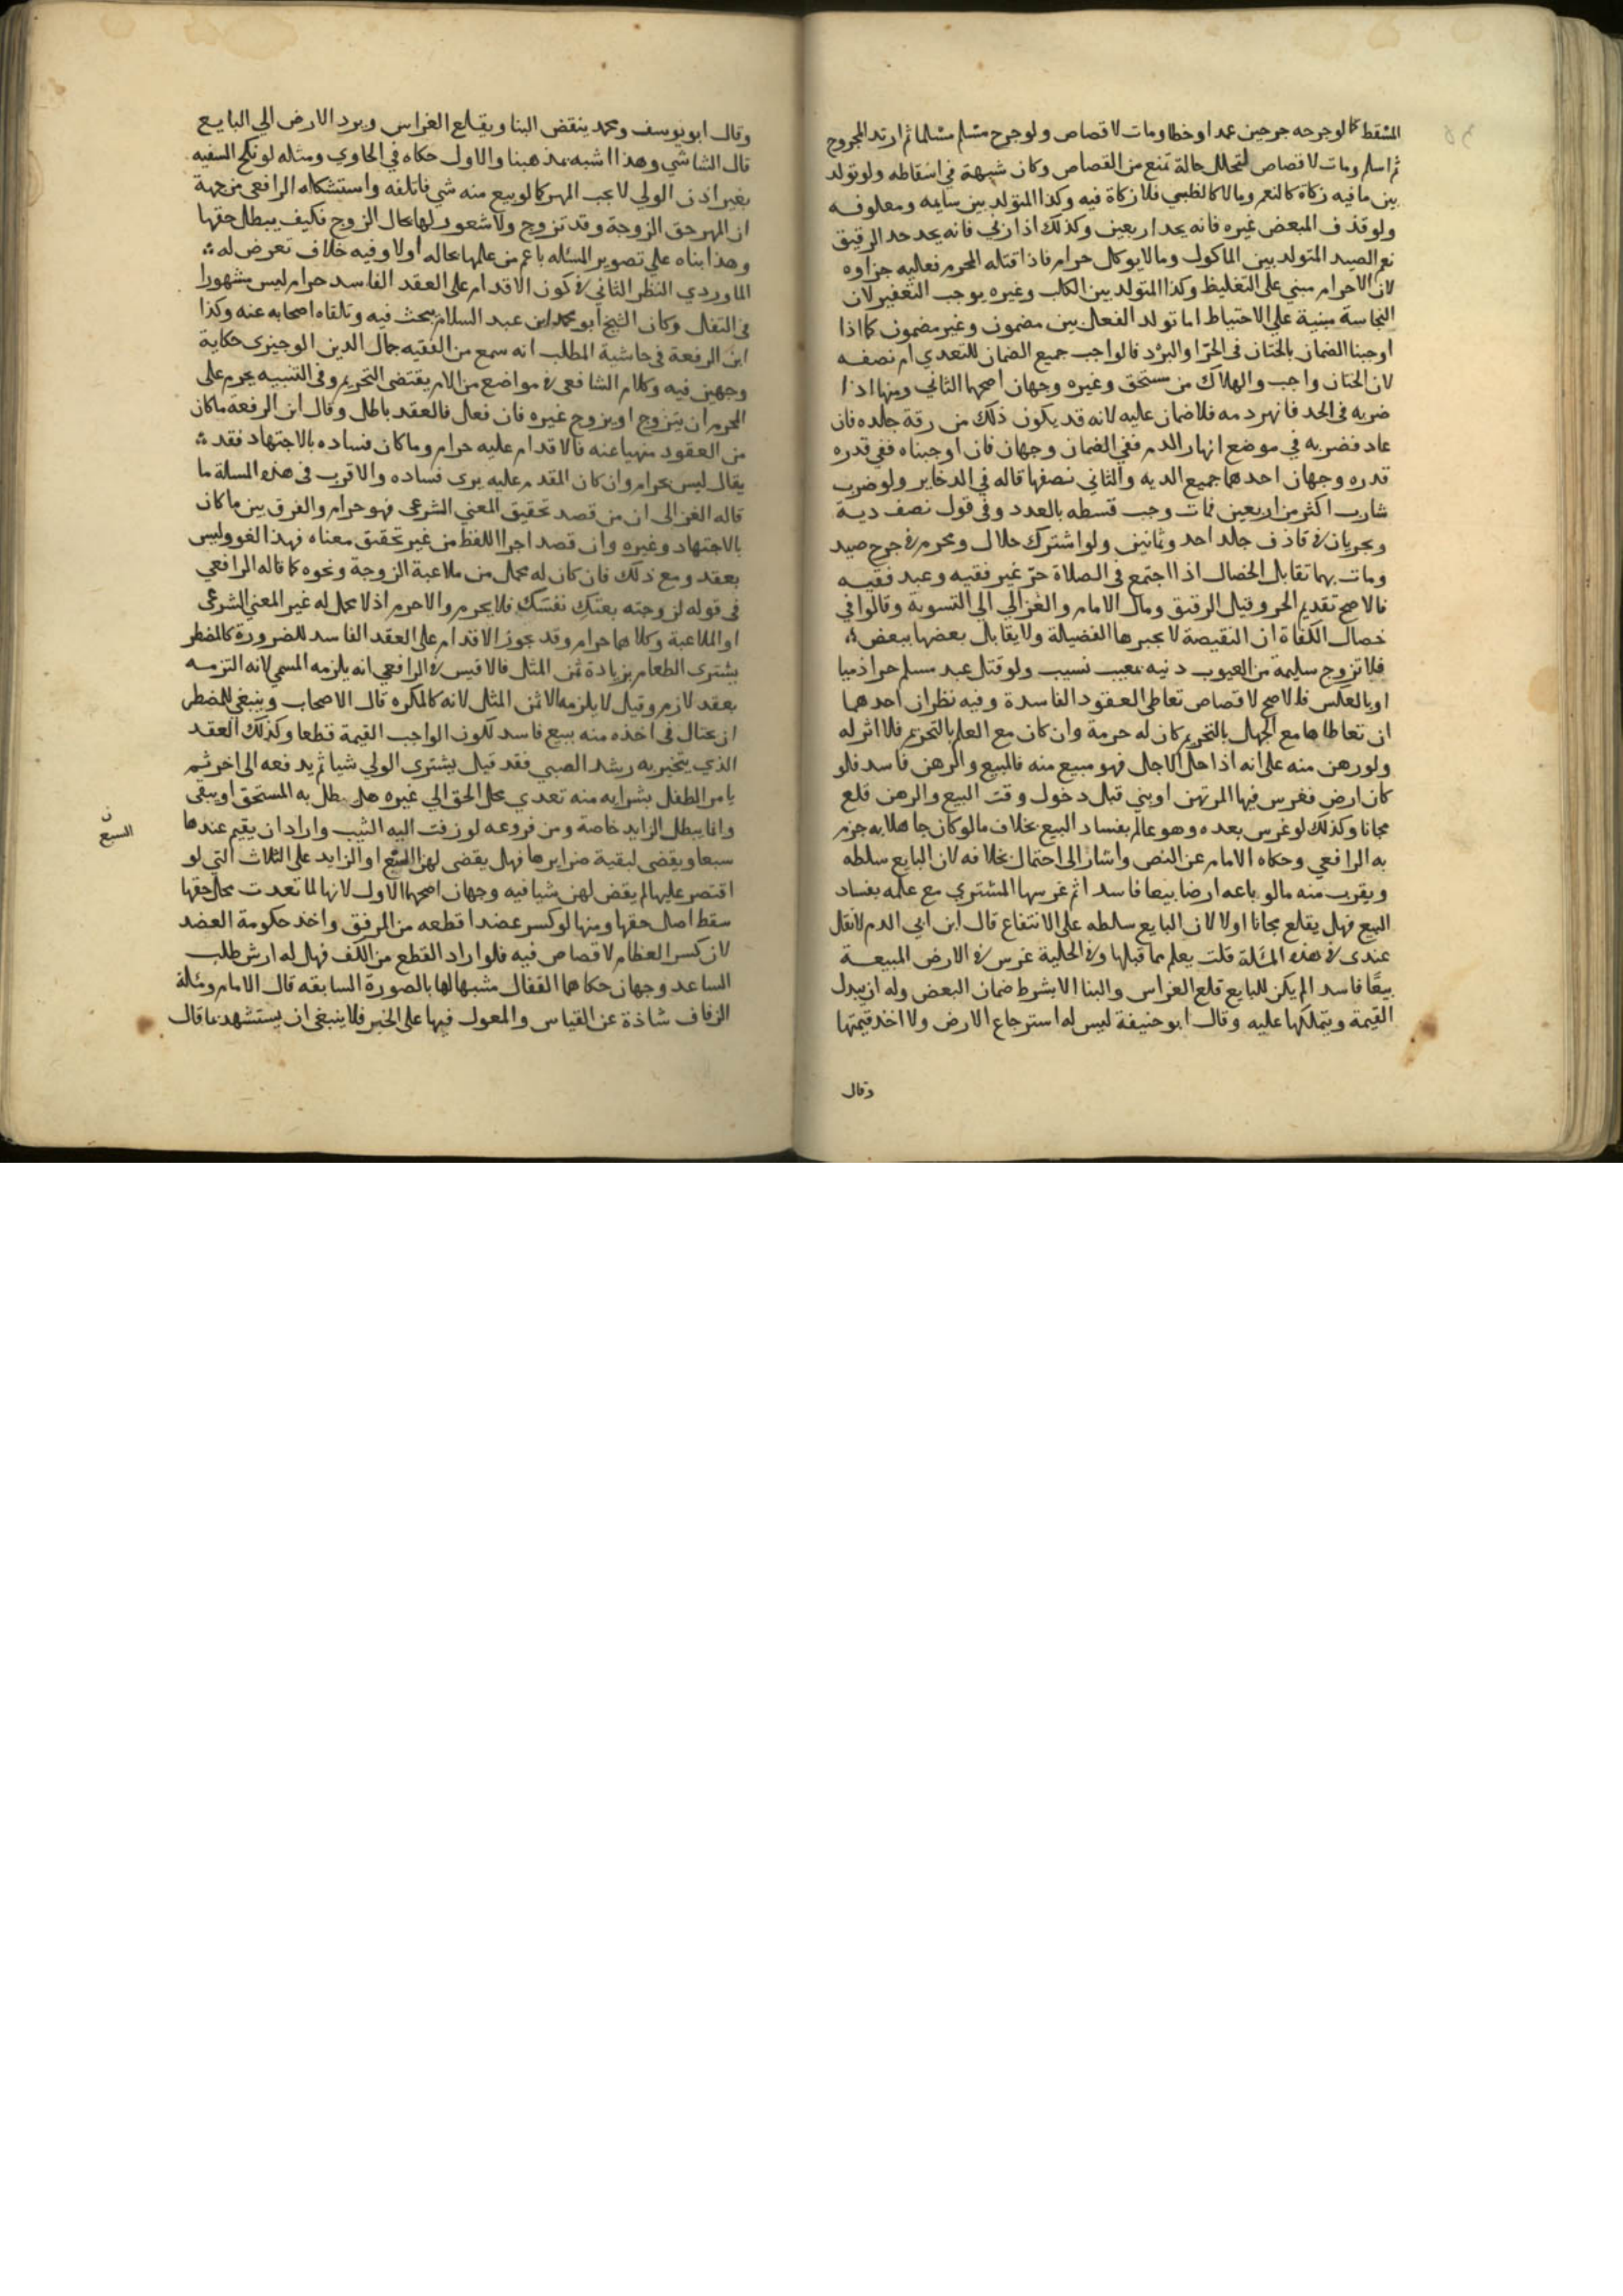 المسقط كما لوجرحه جرحين عمدا وخطا ومات لا قصاص ولو جرح مسلم مسلما ثم ارتد المجروح
ثم اسلم ومات لا قصاص لتخلل حالة تمنع من القصاص وكان شبهة في اسقاطه ولو تولد
بين ما فيه زكاة كالنعم وما لا كالظبي فلا زكاة فيه وكذا المتولد بين سايمه ومعلوفه
ولو قذف المبعض غيره فانه يحد اربعين وكذلك اذا زنى فانه يحد حد الرقيق
نعم الصيد المتولد بين الماكول وما لا يوكل حرام فاذا قتله المحرم فعليه جزاوه
لان الاحرام مبني على التغليظ وكذا المتولد بين الكلب وغيره يوجب التعفير لان
النجاسة مبنية على الاحتياط اما تولد الفعل بين مضمون وغير مضمون كما اذا
اوجبنا الضمان بالختان في الحر او البرد فالواجب جميع الضمان للتعدي ام نصفه
لان الختان واجب والهلاك من مستحق وغيره وجهان اصحهما الثاني ومنها اذا
ضربه في الحد فانهر دمه فلا ضمان عليه لانه قد يكون ذلك من رقة جلده فان
عاد فضربه في موضع انهار الدم ففي الضمان وجهان فان اوجبناه ففي قدره
قدره وجهان احدهما جميع الديه والثاني نصفها قاله في الدخاير ولو ضرب
شارب اكثر من اربعين فمات وجب قسطه بالعدد وفي قول نصف دية
ويجريان في قاذف جلد احد وثمانين ولو اشترك حلال ومحرم في جرح صيد
ومات بهما تقابل الخصال اذا اجتمع في الصلاة حر غير فقيه وعبد فقيه
فالاصح تقديم الحر وقيل الرقيق ومال الامام والغزالي الى التسوية وقالوا في
خصال الكفاة ان النقيصة لا يجبرها الفضيلة ولا يقابل بعضها ببعض
فلا تزوج سليمة من العيوب دنيه بمعيب نسيب ولو قتل عبد مسلم حرا ذميا
او بالعكس فالاصح لا قصاص تعاطي العقود الفاسدة وفيه نظران احدهما
ان تعاطاها مع الجهل بالتحريم كان له حرمة وان كان مع العلم بالتحريم فلا اثر له
ولو رهن منه على انه اذا حل الاجل فهو مبيع منه فالمبيع والرهن فاسد فلو
كان ارض فغرس فيها المرتهن او بني قبل دخول وقت البيع والرهن قلع
مجانا وكذلك لو غرس بعده وهو عالم بفساد البيع بخلاف مالو كان جاهلا به جزم
به الرافعي وحكاه الامام عن النص واشار الى احتمال بخلافه لان البايع سلطه
ويقرب منه مالو باعه ارضا بيعا فاسدا ثم غرسها المشتري مع علمه بفساد
البيع فهل يقلع مجانا اولا لان البايع سلطه على الانتفاع قال ابن ابي الدم لا نقل
عندي في هذه المسلة قلت يعلم مما قبلها وفي الحلية غرس في الارض المبيعة
بيعا فاسدا لم يكن للبايع قلع الغراس والبنا الا بشرط ضمان البعض وله ان يبدل
القيمة ويتملكها عليه وقال ابو حنيفة ليس له استرجاع الارض ولا اخذ قيمتها
وقال
وقال ابو يوسف ومحمد ينقض البنا ويقلع الغراس ويرد الارض الى البايع
قال الشاشي وهذا اشبه بمذهبنا والاول حكاه في الحاوي ومثله لو نكح السفيه
بغير اذن الولي لا يجب المهر كما لو بيع منه شي فاتلفه واستشكله الرافعي من جهة
ان المهر حق الزوجة وقد تزوج ولا شعور لها بحال الزوج فكيف يبطل حقها
وهذا بناه على تصوير المسئله باعم من علمها بحاله اولا وفيه خلاف تعرض له
الماوردي النظر الثاني في كون الاقدام على العقد الفاسد حرام ليس مشهورا
في النقل وكان الشيخ ابو محمد ابن عبد السلام يبحث فيه وتلقاه اصحابه عنه وكذا
ابن الرفعة في حاشية المطلب انه سمع من الفقيه جمال الدين الوجيزي حكاية
وجهين فيه وكلام الشافعي في مواضع من الام يقتضي التحريم وفي التنبيه يحرم على
المحرم ان يتزوج او يزوج غيره فان فعل فالعقد باطل وقال ابن الرفعة ما كان
من العقود منهيا عنه فالاقدام عليه حرام وما كان فساده بالاجتهاد فقد
يقال ليس بحرام وان كان المقدم عليه يرى فساده والاقرب في هذه المسلة ما
قاله الغزالي ان من قصد تحقيق المعنى الشرعي فهو حرام والفرق بين ما كان
بالاجتهاد وغيره وان قصد اجرا اللفظ من غير تحقيق معناه فهذا لغو وليس
بعقد ومع ذلك فان كان له محمل من ملاعبة الزوجة ونحوه كما قاله الرافعي
في قوله لزوجته بعتك نفسك فلا يحرم والا حرم اذ لا محمل له غير المعنى الشرعي
او الملاعبة وكلاهما حرام وقد يجوز الاقدام على العقد الفاسد للضرورة كالمضطر
يشتري الطعام بزيادة ثمن المثل فالاقيس في الرافعي انه يلزمه المسمى لانه التزمه
بعقد لازم وقيل لا يلزمه الا ثمن المثل لانه كالمكره قال الاصحاب وينبغي للمضطر
ان يحتال في اخذه منه ببيع فاسد لكون الواجب القيمة قطعا وكذلك العقد
الذي يختبر به رشد الصبي فقد قيل يشتري الولي شيا ثم يدفعه الى اخر ثم
يامر الطفل بشرايه منه تعدي محل الحق الى غيره هل يبطل به المستحق او يبقى
وانما يبطل الزايد خاصة ومن فروعه لو زفت اليه الثيب واراد ان يقيم عندها
سبعا ويقضي لبقية ضرايرها فهل يقضي لهن السبع او الزايد على الثلاث التي لو
اقتصر عليها لم يقض لهن شيا فيه وجهان اصحهما الاول لانها لما تعدت محل حقها
سقط اصل حقها ومنها لو كسر عضدا قطعه من المرفق واخذ حكومة العضد
لان كسر العظام لا قصاص فيه فلو اراد القطع من الكف فهل له ارش طلب
الساعد وجهان حكاهما القفال مشبها لها بالصورة السابقه قال الامام ومسلة
الزفاف شاذة عن القياس والمعول فيها على الخبر فلا ينبغي ان يستشهد بها قال
ن
السبع